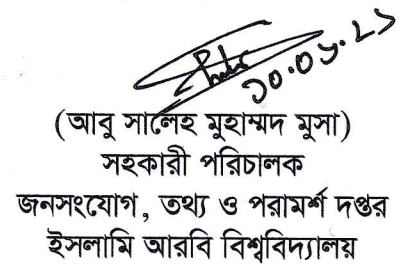 ১০.০১.২১
(আবু সালেহ মুহাম্মদ মুসা)
সহকারী পরিচালক
জনসংযোগ, তথ্য ও পরামর্শ দপ্তর
ইসলামি আরবি বিশ্ববিদ্যালয়